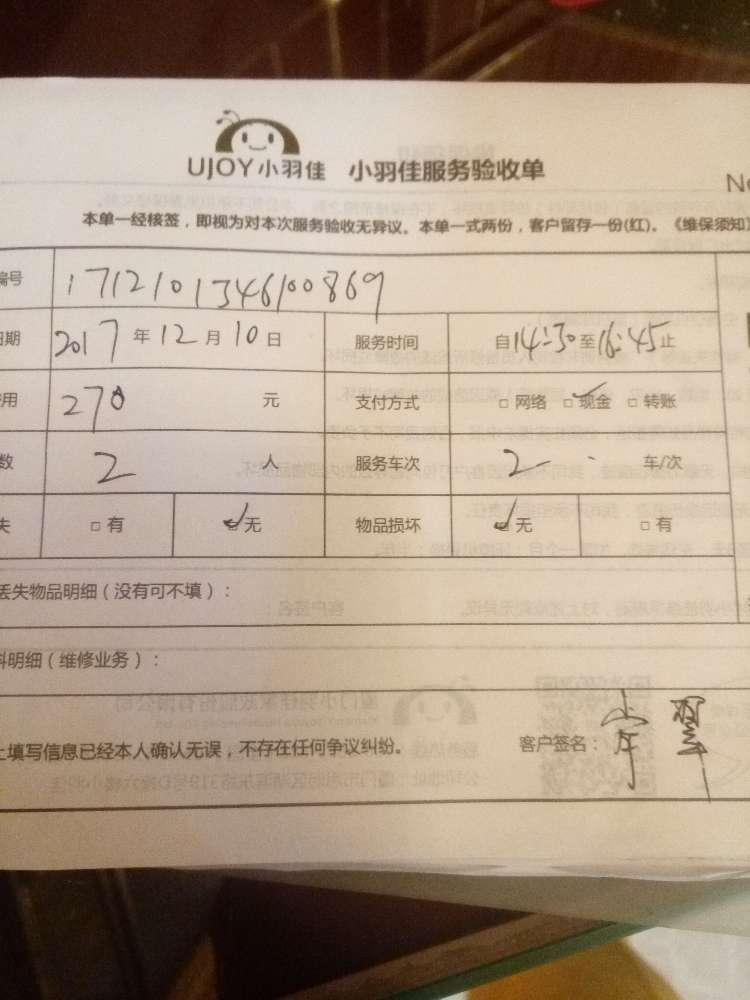 UJOY小羽佳 小羽佳服务验收单
No
本单一经核签，即视为对本次服务验收无异议。本单一式两份，客户留存一份(红)。《维保须知》
编号 1712101346100869
日期 2017年12月10日 服务时间 自14:30至16:45止
用 270 元 支付方式 □网络 ☑现金 □转账
数 2 人 服务车次 2 车/次
失 □有 ☑无 物品损坏 ☑无 □有
丢失物品明细（没有可不填）：
料明细（维修业务）：
上填写信息已经本人确认无误，不存在任何争议纠纷。 客户签名：